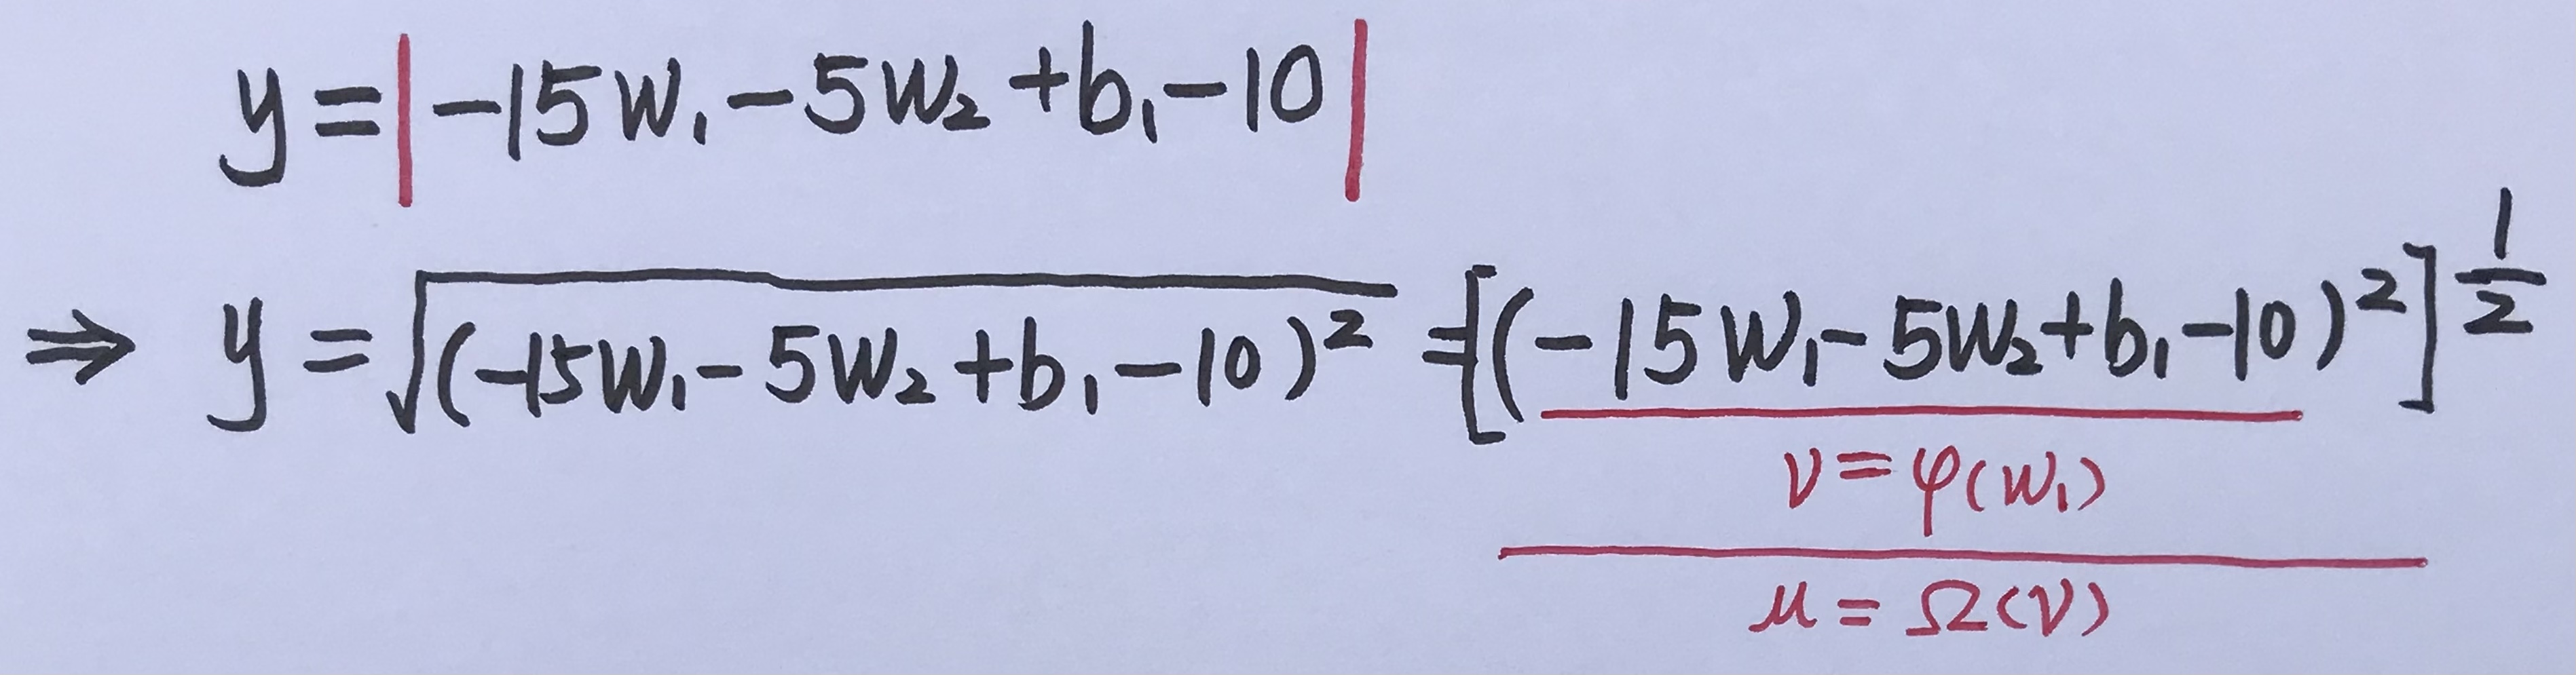 y = | -15w₁ - 5w₂ + b₁ - 10 |
⇒ y = √(-15w₁ - 5w₂ + b₁ - 10)² = [(-15w₁ - 5w₂ + b₁ - 10)²]^(1/2)
ν = φ(w₁)
μ = Ω(ν)